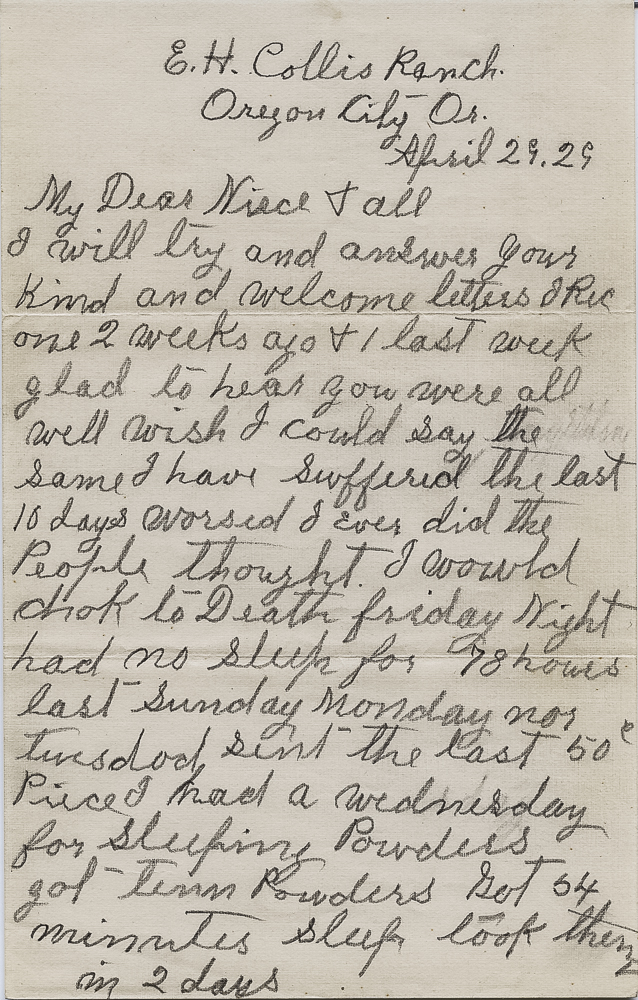 E. H. Collis Ranch.
Oregon City Or.
April 29. 29
My Dear Niece & all
I will try and answer your
kind and welcome letters I Rec
one 2 weeks ago & 1 last week
glad to hear you were all
well wish I could say the
same I have suffered the last
10 days worsed I ever did the
People thought. I would
chok to Death friday Night
had no sleep for 78 hours
last Sunday Monday nor
tuesdod sent the last 50¢
Piece I had a wednesday
for sleeping Powders
got tenn Powders Got 54
minutes sleep took them
in 2 days